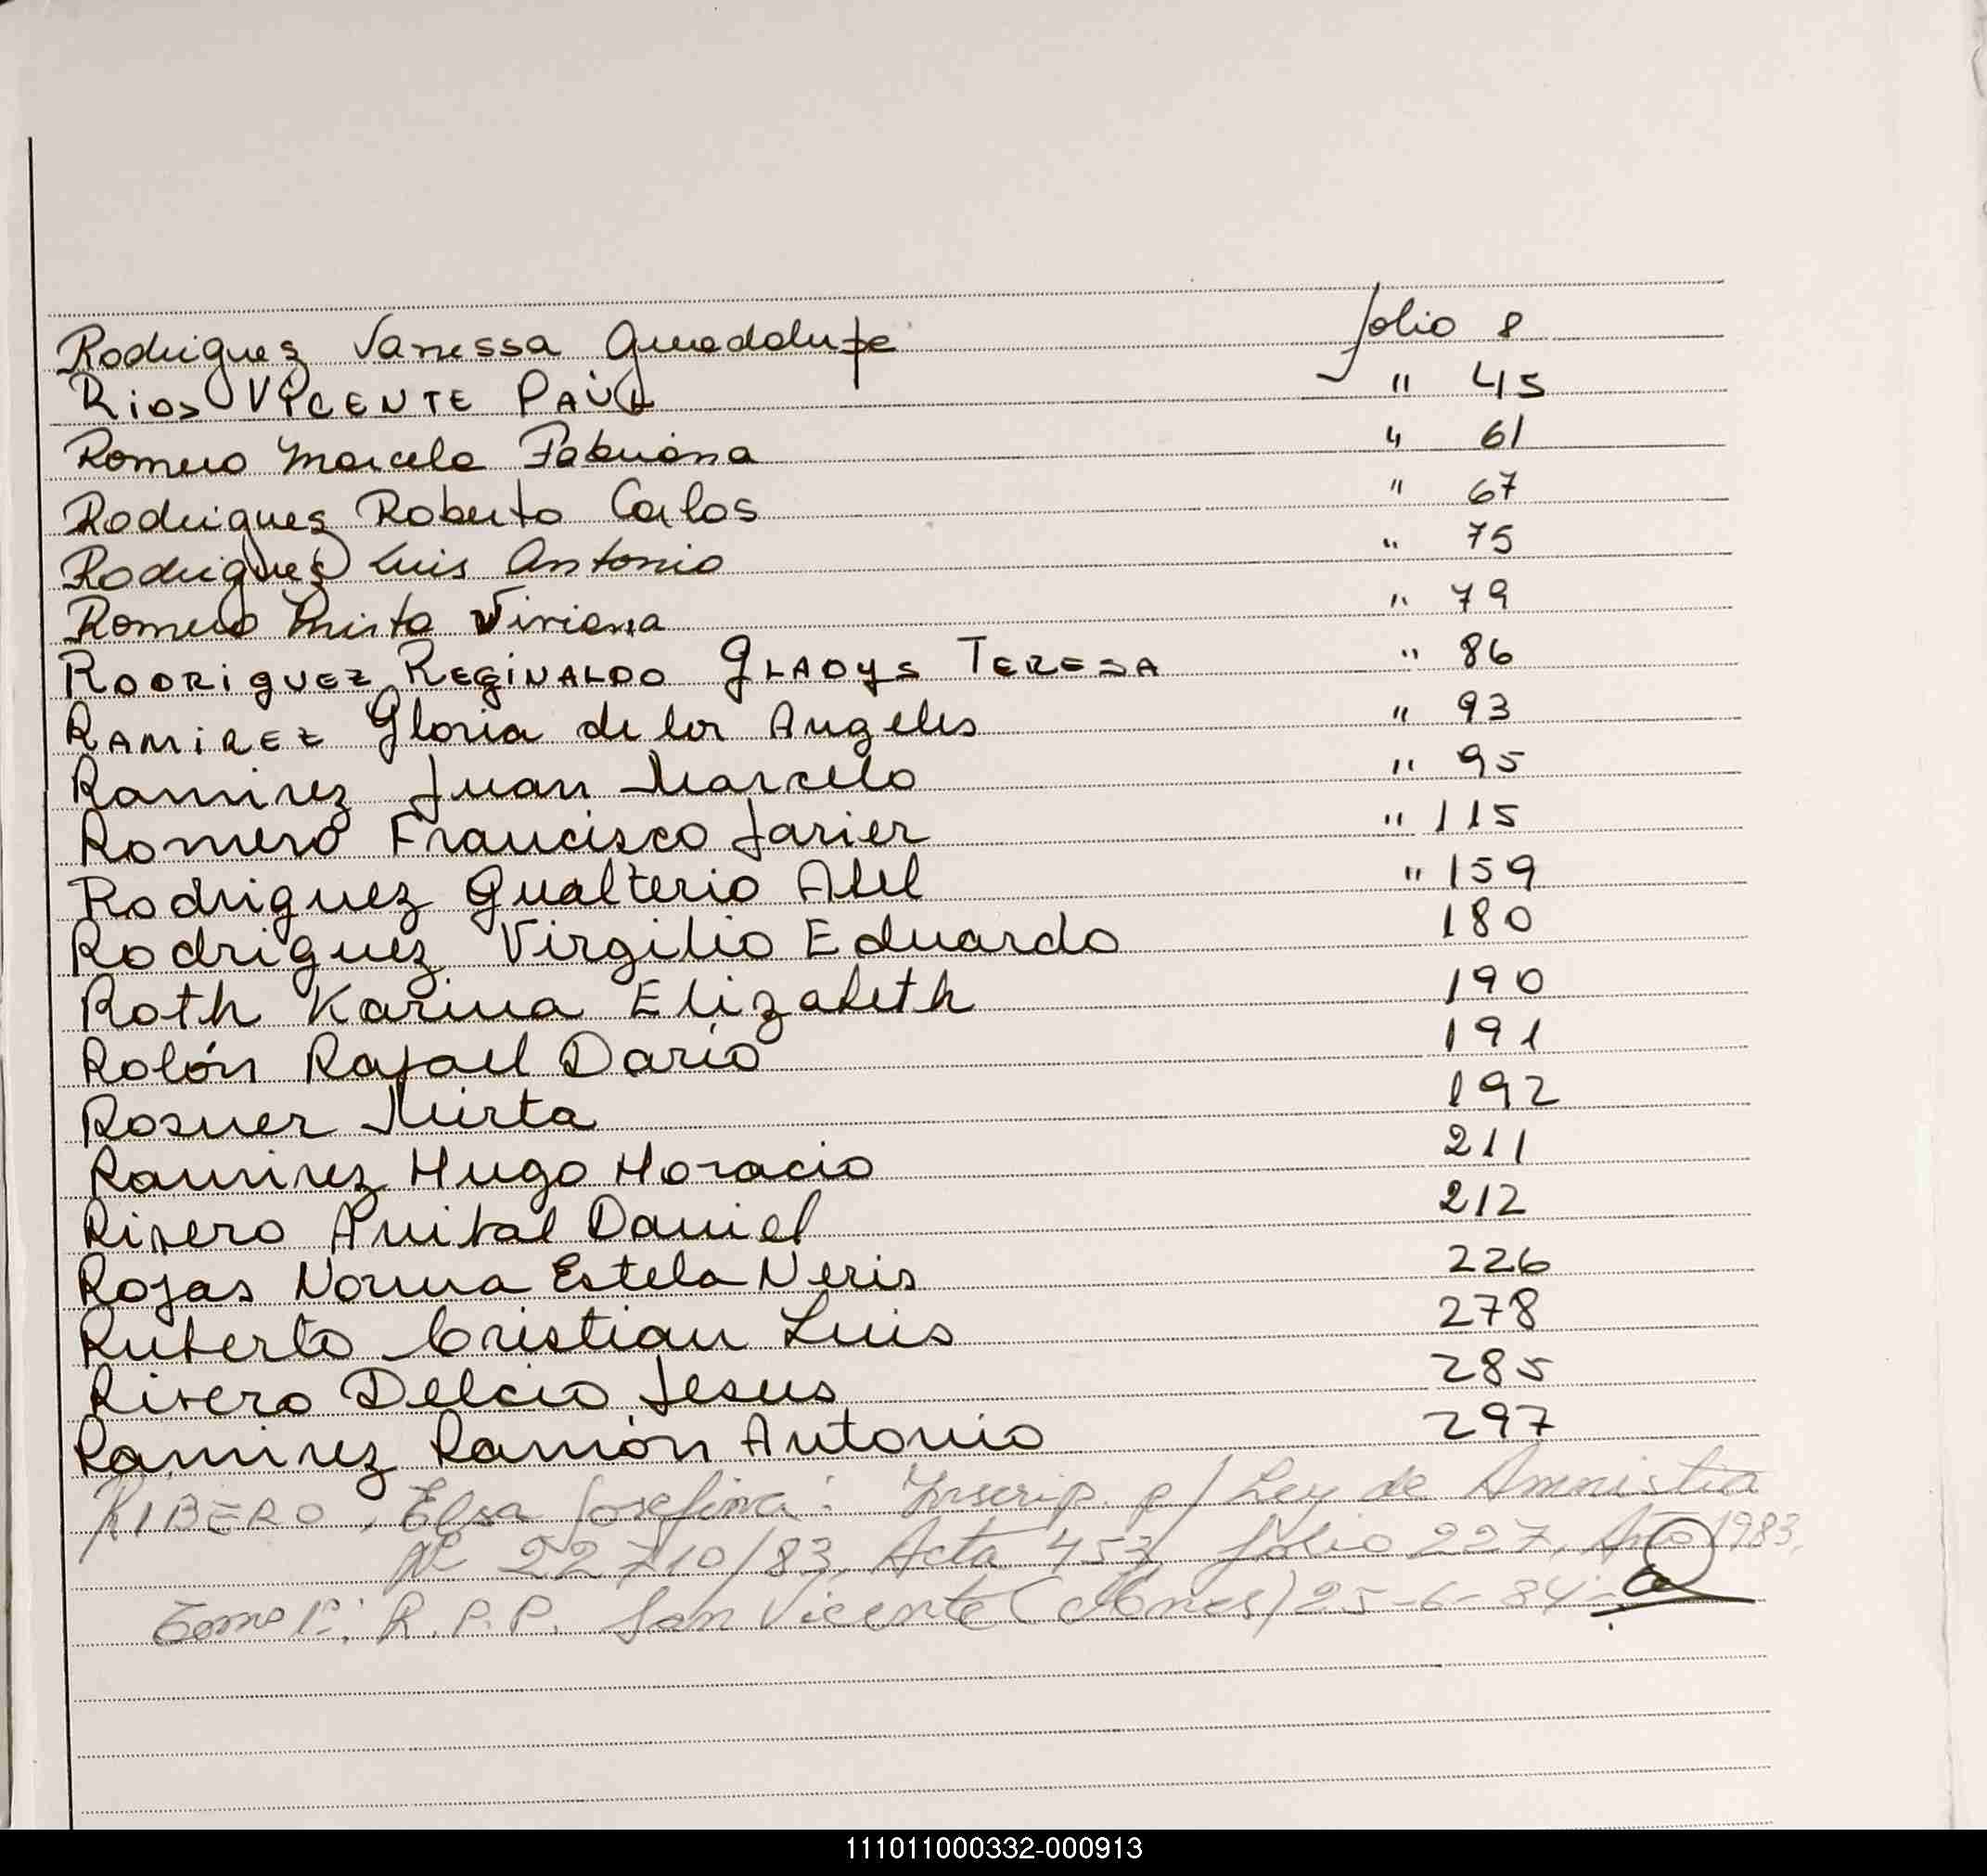 Rodriguez Vanessa Guadalupe folio 8
Rios VICENTE PAÚL " 45
Romero Marcela Fabiana " 61
Rodriguez Roberto Carlos " 67
Rodriguez Luis Antonio " 75
Romero Mirta Viviana " 79
RODRIGUEZ REGINALDO GLADYS TERESA " 86
RAMIREZ Gloria de los Angeles " 93
Ramirez Juan Marcelo " 95
Romero Francisco Javier " 115
Rodriguez Gualterio Abel " 159
Rodriguez Virgilio Eduardo 180
Roth Karina Elizabeth 190
Rolón Rafael Dario 191
Rosner Mirta 192
Ramirez Hugo Horacio 211
Rivero Anibal Daniel 212
Rojas Norma Estela Neris 226
Ruberto Cristian Luis 278
Rivero Delcio Jesus 285
Ramirez Ramón Antonio 297
RIBERO, Elsa Josefina: Inscrip. p/ Ley de Amnistia
Nº 22710/83, Acta 453, folio 227, Año 1983,
Tomo 1º: R.P.P. San Vicente (Mnes) 25-6-84-
111011000332-000913